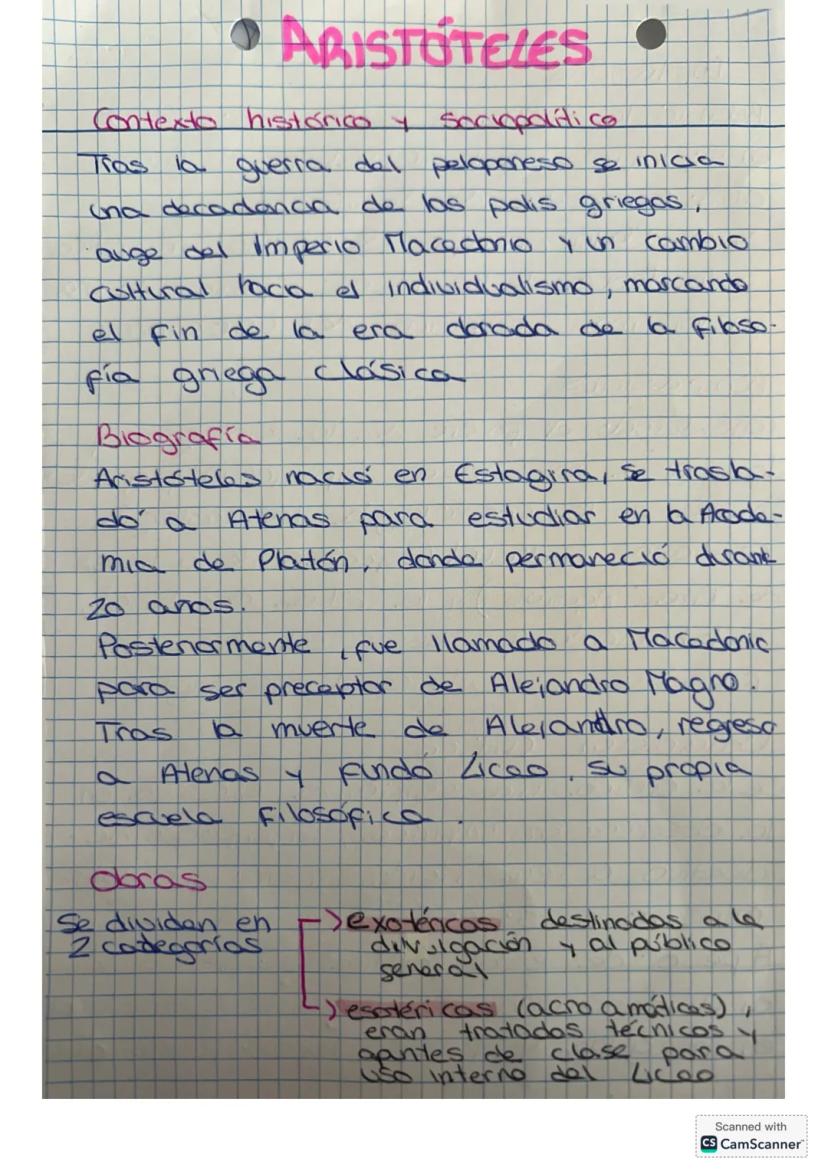 ARISTÓTELES
Contexto histórico y sociopolítico
Tras la guerra del peloponeso se inicia
una decadencia de las polis griegas,
auge del Imperio Macedonio y un cambio
cultural hacia el individualismo, marcando
el fin de la era dorada de la filoso-
fía griega clásica
Biografía
Aristóteles nació en Estagira, se trasla-
dó a Atenas para estudiar en la Acade-
mia de Platón, donde permaneció durante
20 anos.
Posteriormente, fue llamado a Macedonia
para ser preceptor de Alejandro Magno.
Tras la muerte de Alejandro, regreso
a Atenas y fundó Liceo, su propia
escuela filosófica.
Obras
Se dividen en
2 categorías
→ exotéricas destinadas a la
divulgación y al público
general
→ esotéricas (acroamáticas),
eran tratados técnicos y
apantes de clase para
uso interno del Liceo
Scanned with
CS CamScanner